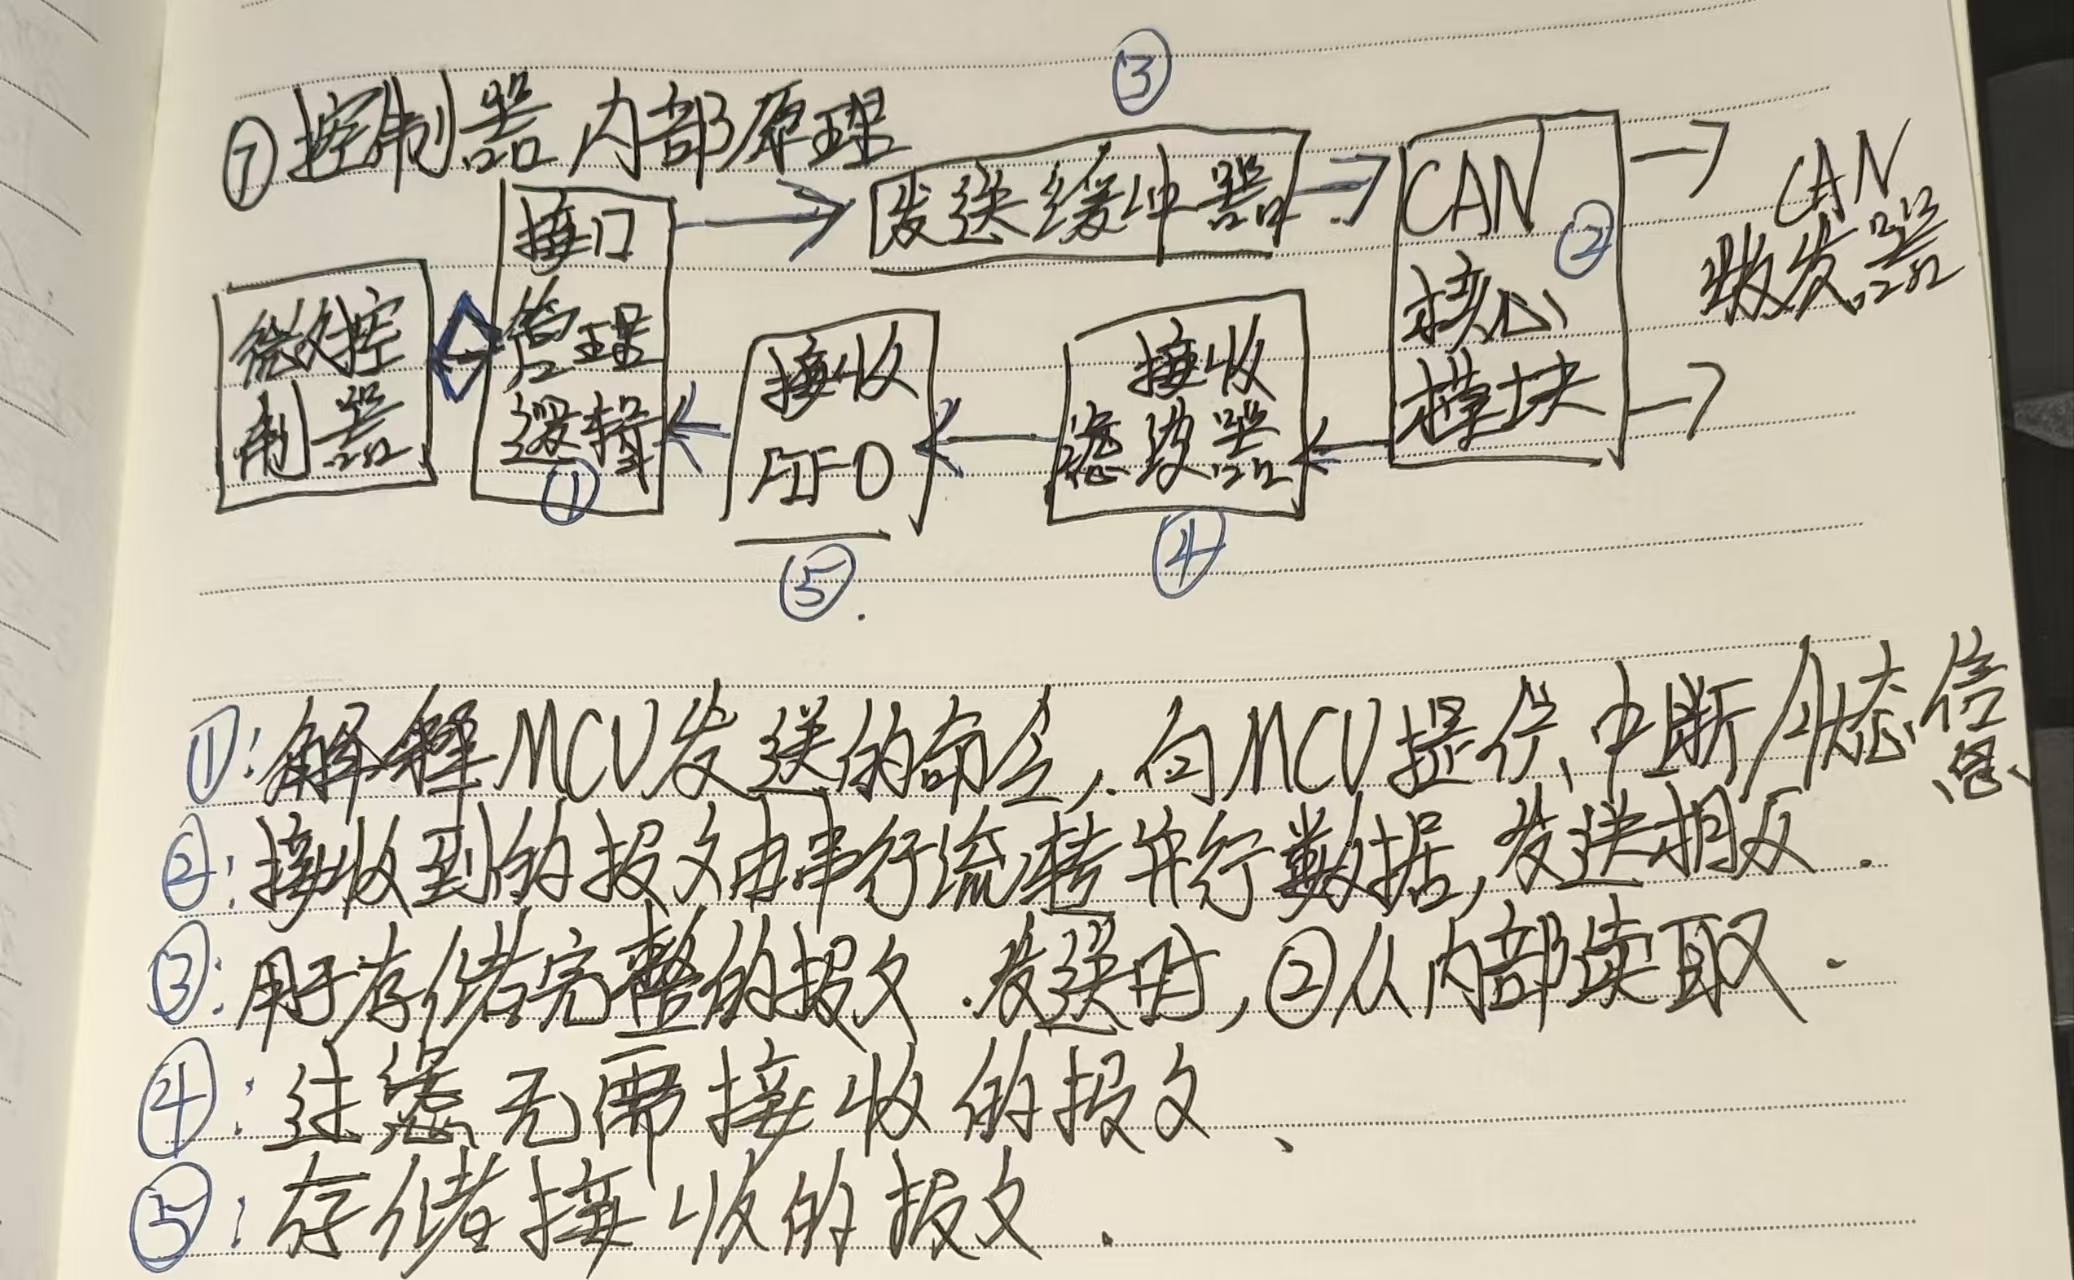 ③
⑦控制器内部原理
发送缓冲器
CAN
核心
模块
②
CAN
收发器
接口
管理
逻辑
①
微控
制器
接收
FIFO
⑤
接收
滤波器
④
①:解释MCU发送的命令,向MCU提供中断/状态信息
②:接收到的报文由串行流转并行数据,发送相反.
③:用于存储完整的报文.发送时,②从内部读取.
④:过滤无需接收的报文、
⑤:存储接收的报文.